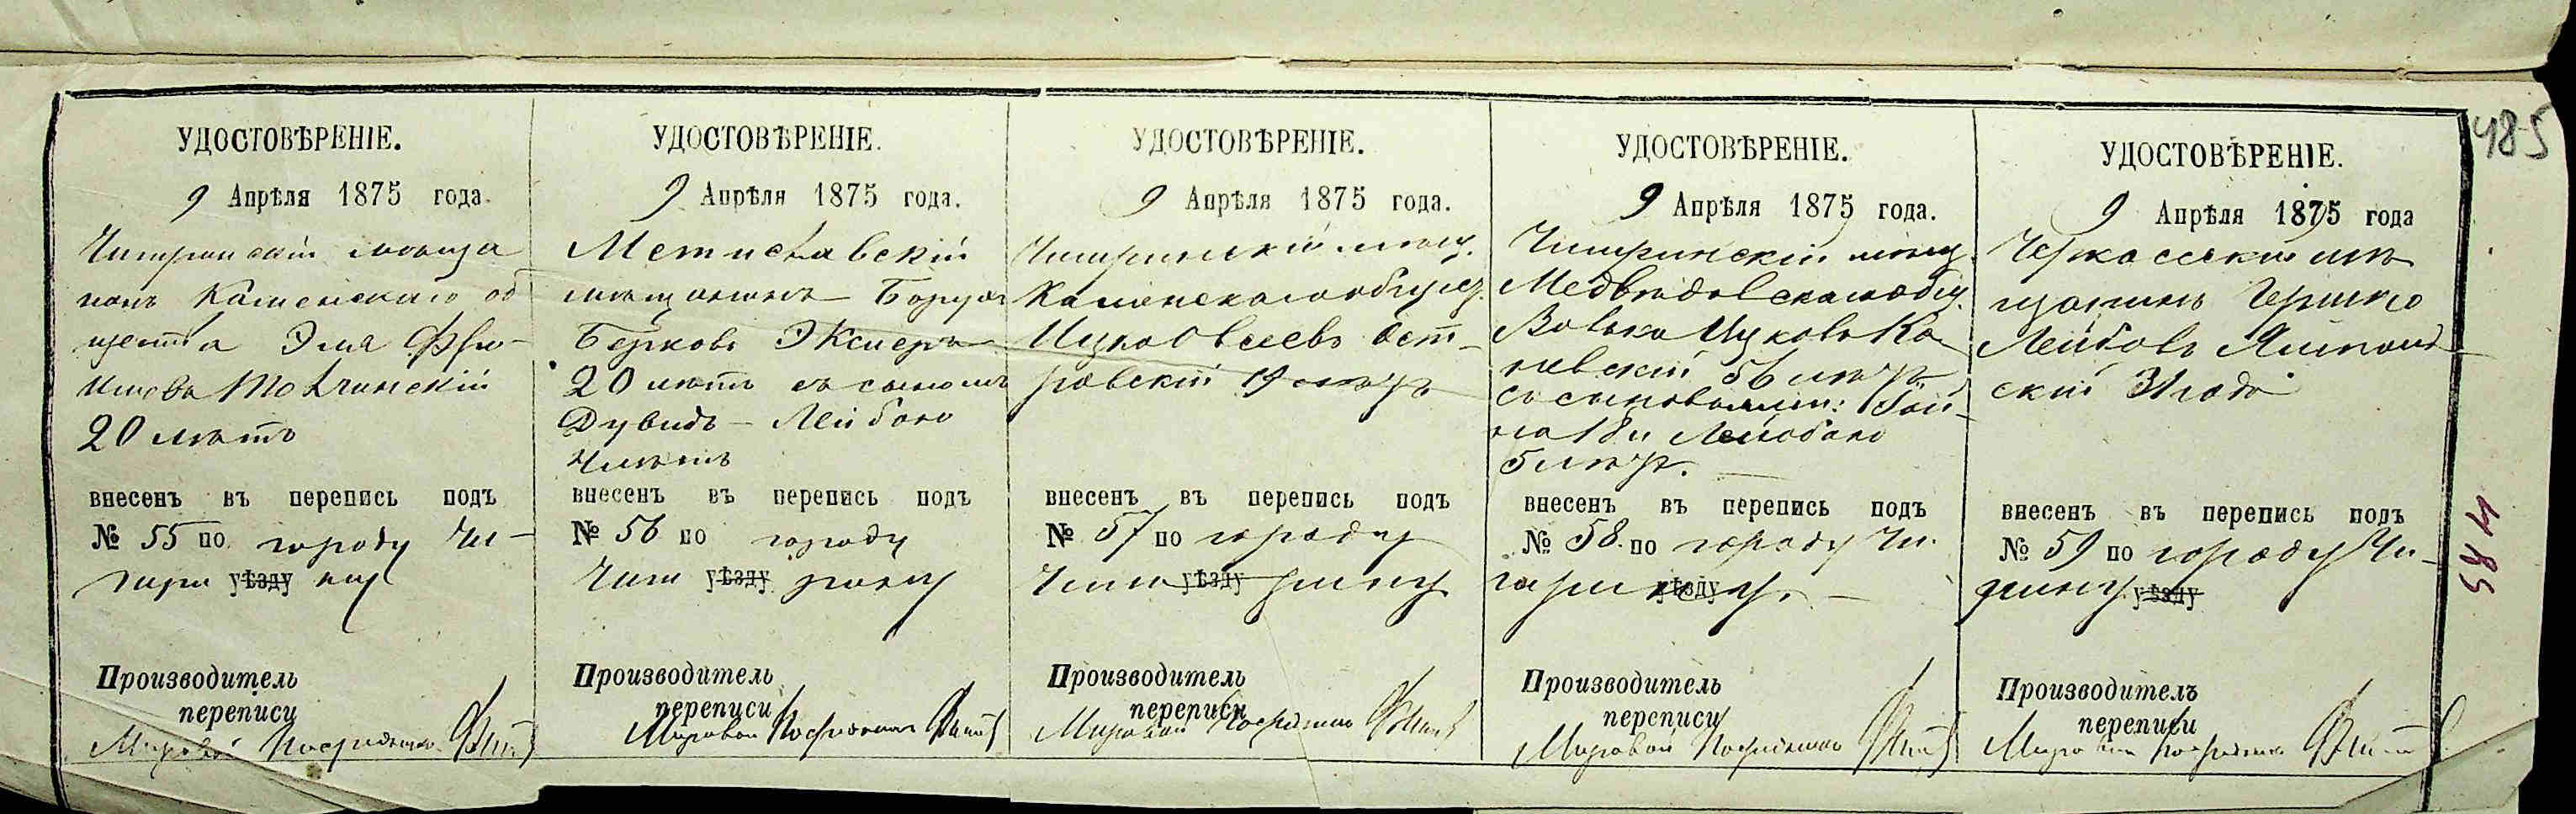 485
УДОСТОВѢРЕНІЕ.
9 Апрѣля 1875 года.
Чигринскій мѣща
нинъ Каменскаго об
щества Эля Фрои
мовъ
20 лѣтъ
внесенъ въ перепись подъ
№ 55 по городу Чи-
гири уѣзду ну
Производитель
переписи
Мировой Посредникъ
УДОСТОВѢРЕНІЕ.
9 Апрѣля 1875 года.
Мстиславскій
мѣщанинъ Борухъ
Берковъ
20 лѣтъ съ сыномъ
Дувидъ-Лейбою
лѣтъ
внесенъ въ перепись подъ
№ 56 по городу
Чиги уѣзду рину
Производитель
переписи
Мировой Посредникъ
УДОСТОВѢРЕНІЕ.
9 Апрѣля 1875 года.
Чигринскій мѣщ.
Каменскаго общес.
Ицко Овсеевъ Ост-
ровскій 19 лѣтъ
внесенъ въ перепись подъ
№ 57 по городу
Чиги уѣзду рину
Производитель
переписи
Мировой Посредникъ
УДОСТОВѢРЕНІЕ.
9 Апрѣля 1875 года.
Чигринскій мѣщ.
Медвѣдовскаго общ.
Волько Ицковъ Ка
невскій 56 лѣтъ
съ сыновьями:
18 и Лейбою
5 лѣтъ.
внесенъ въ перепись подъ
№ 58. по городу Чи-
гирину уѣзду
Производитель
переписи
Мировой Посредникъ
УДОСТОВѢРЕНІЕ.
9 Апрѣля 1875 года
Черкасскій мѣ
щанинъ Гершко
Лейбовъ Ямполь
скій 31 года
внесенъ въ перепись подъ
№ 59 по городу Чи-
рину уѣзду
Производитель
переписи
Мировой Посредникъ